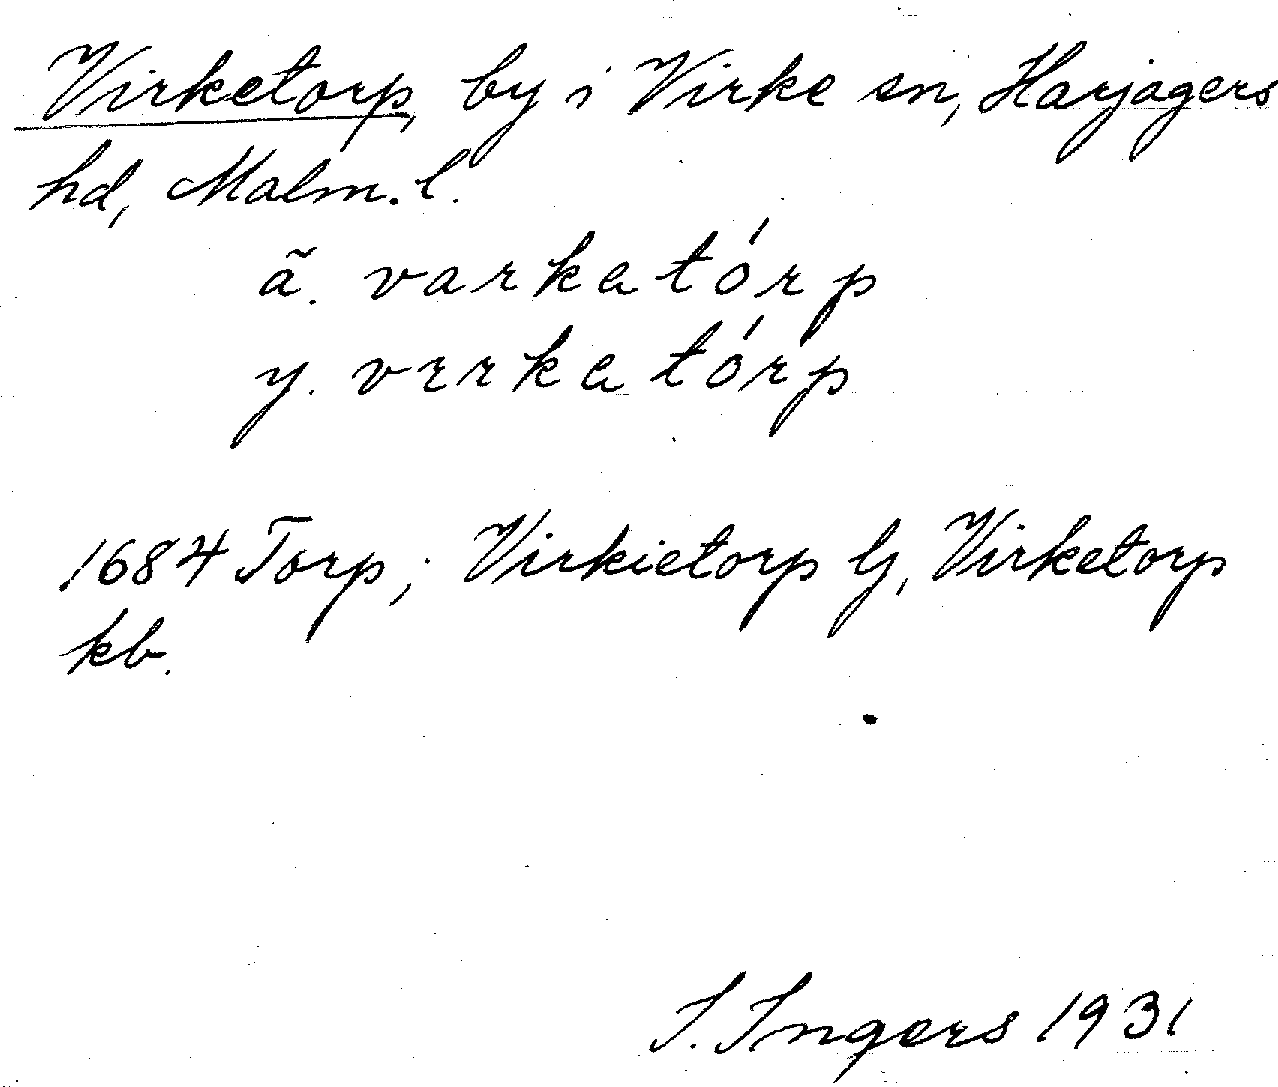 Virketorp, by i Virke sn, Harjagers
hd, Malm. l.
ä. varkatórp
y. vırkatórp
1684 Torp; Virkietorp lj, Virketorp
kb.
I. Ingers 1931